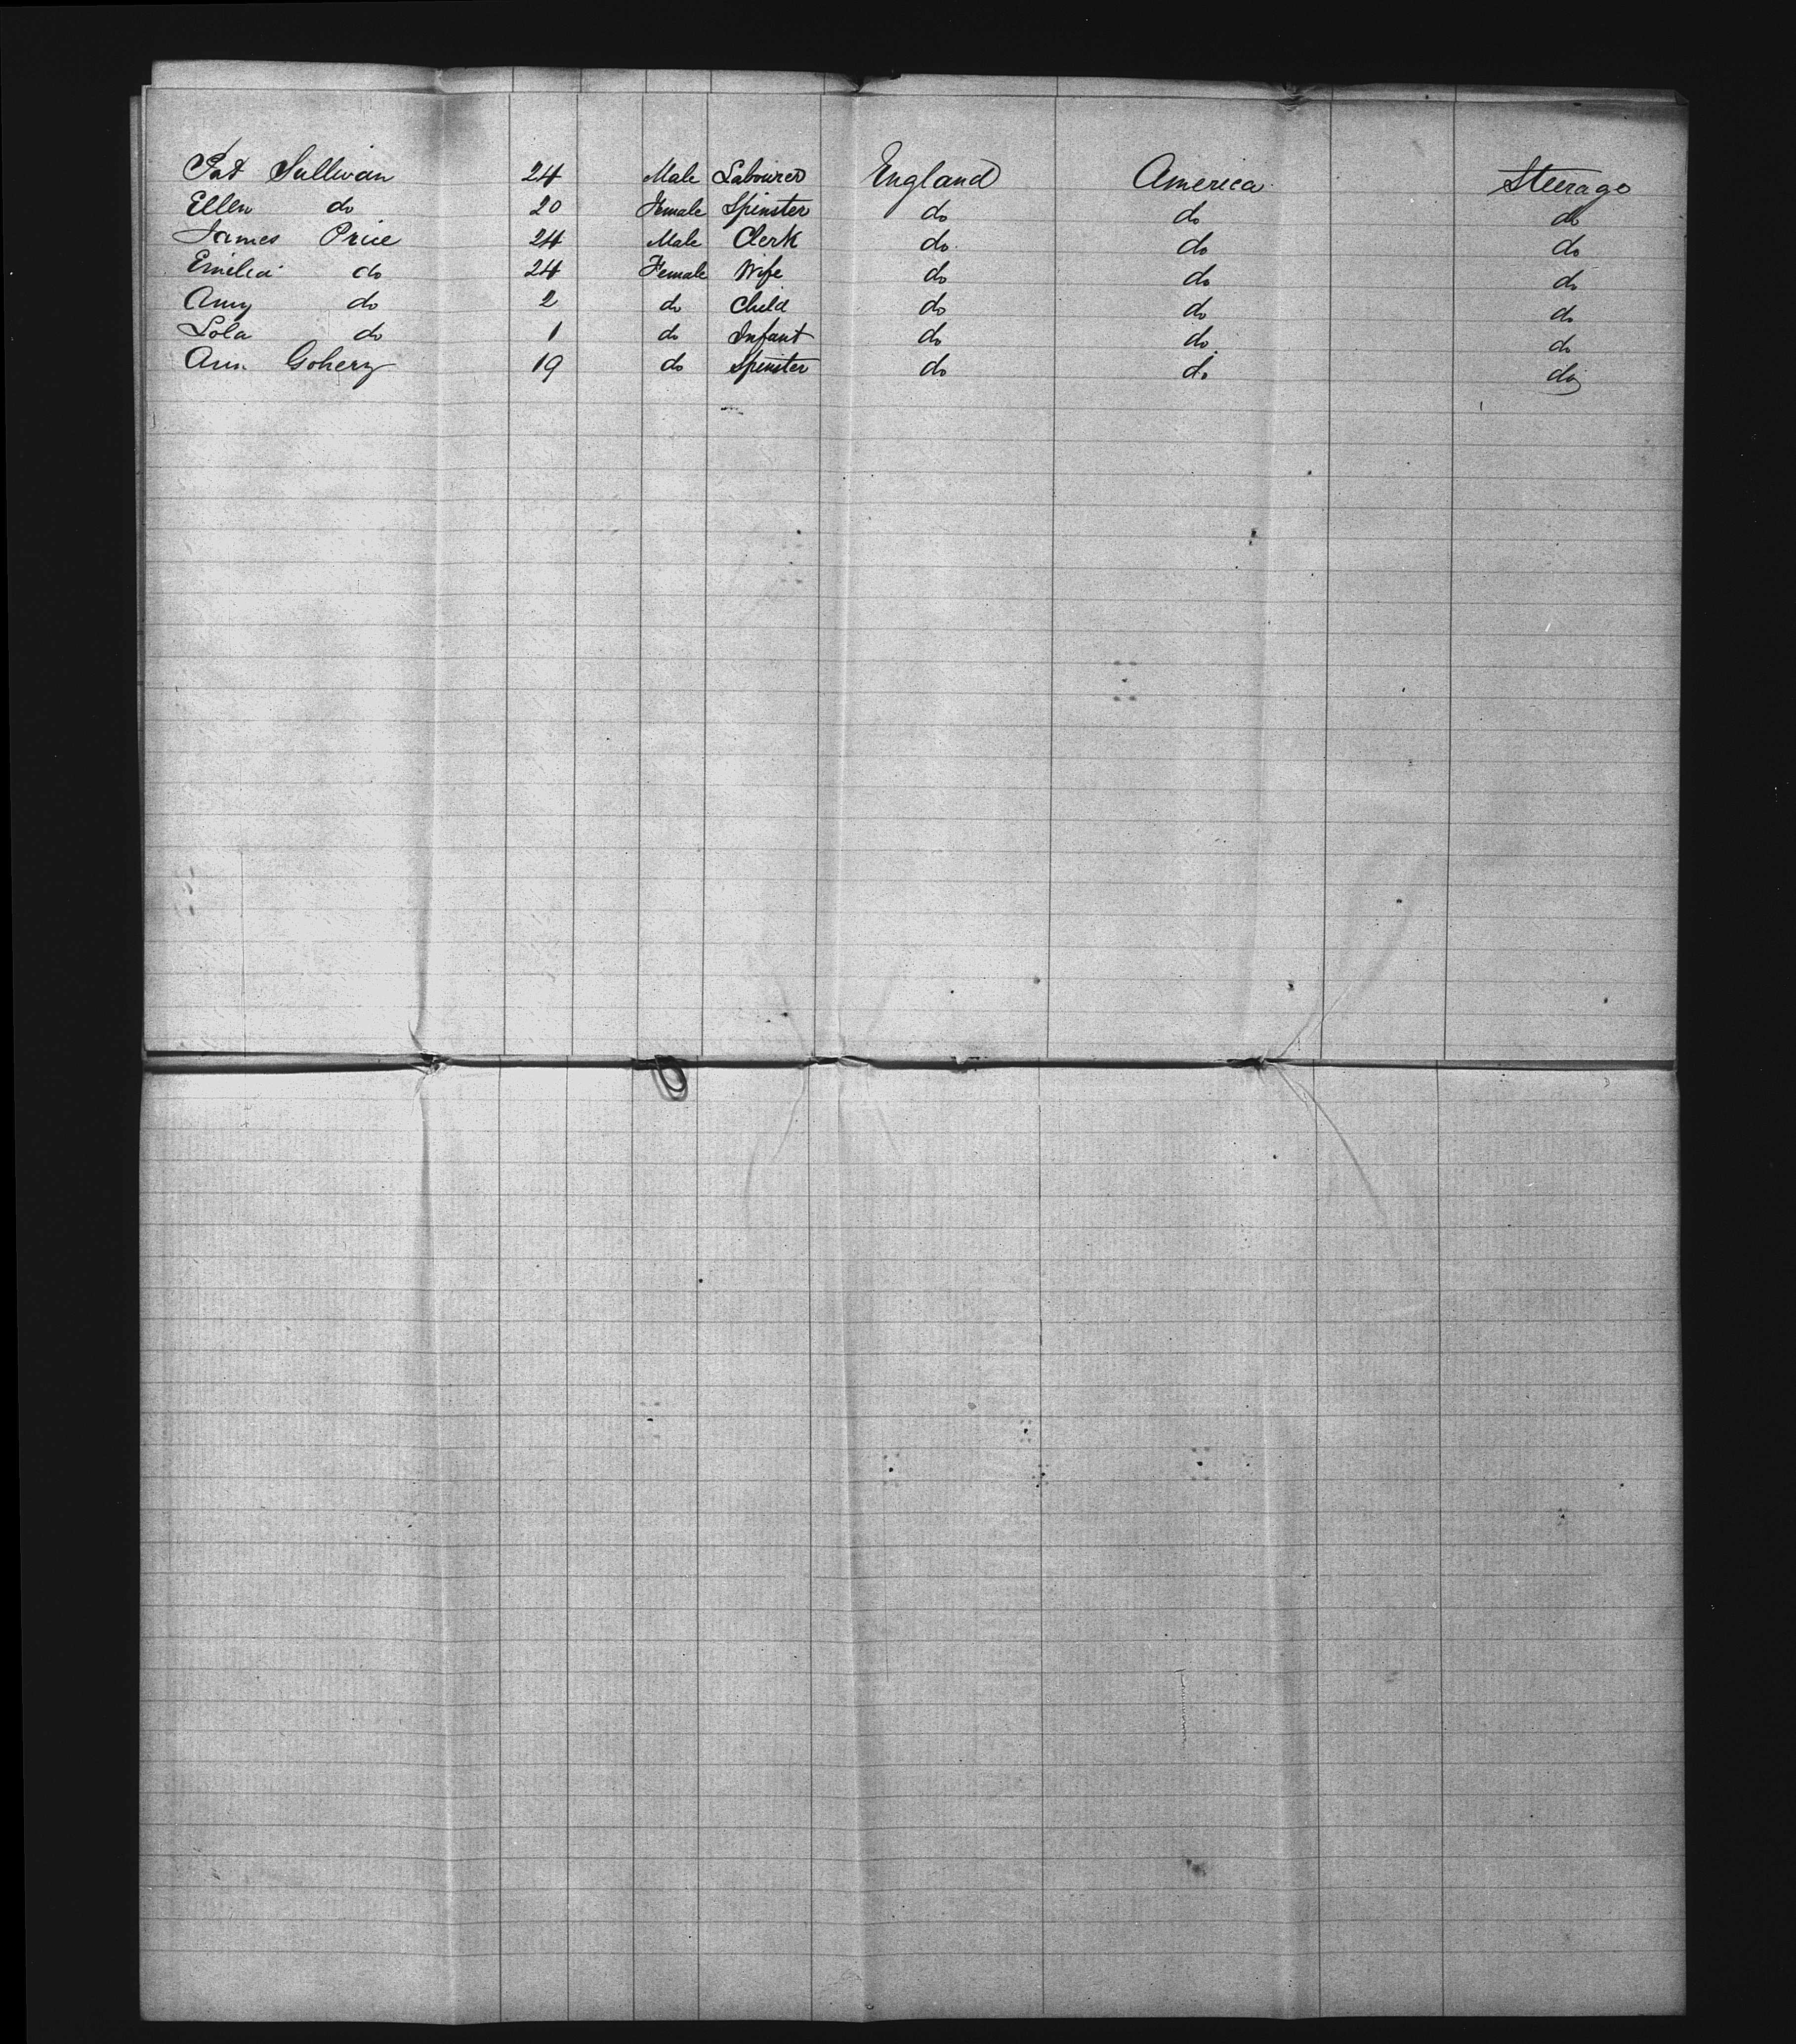 Pat Sullivan 24 Male Labourer England America Steerage
Ellen do 20 Female Spinster do do do
James Price 24 Male Clerk do do do
Emilia do 24 Female Wife do do do
Amy do 2 do Child do do do
Lola do 1 do Infant do do do
Ann Gohery 19 do Spinster do do do